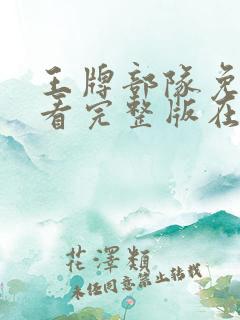 王牌部隊免
看完整版在
花澤類
未經同意禁止轉載